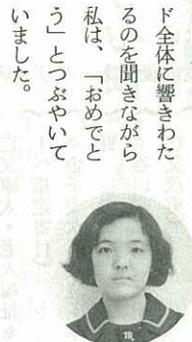 ド全体に響きわた
るのを聞きながら
私は、「おめでと
う」とつぶやいて
いました。